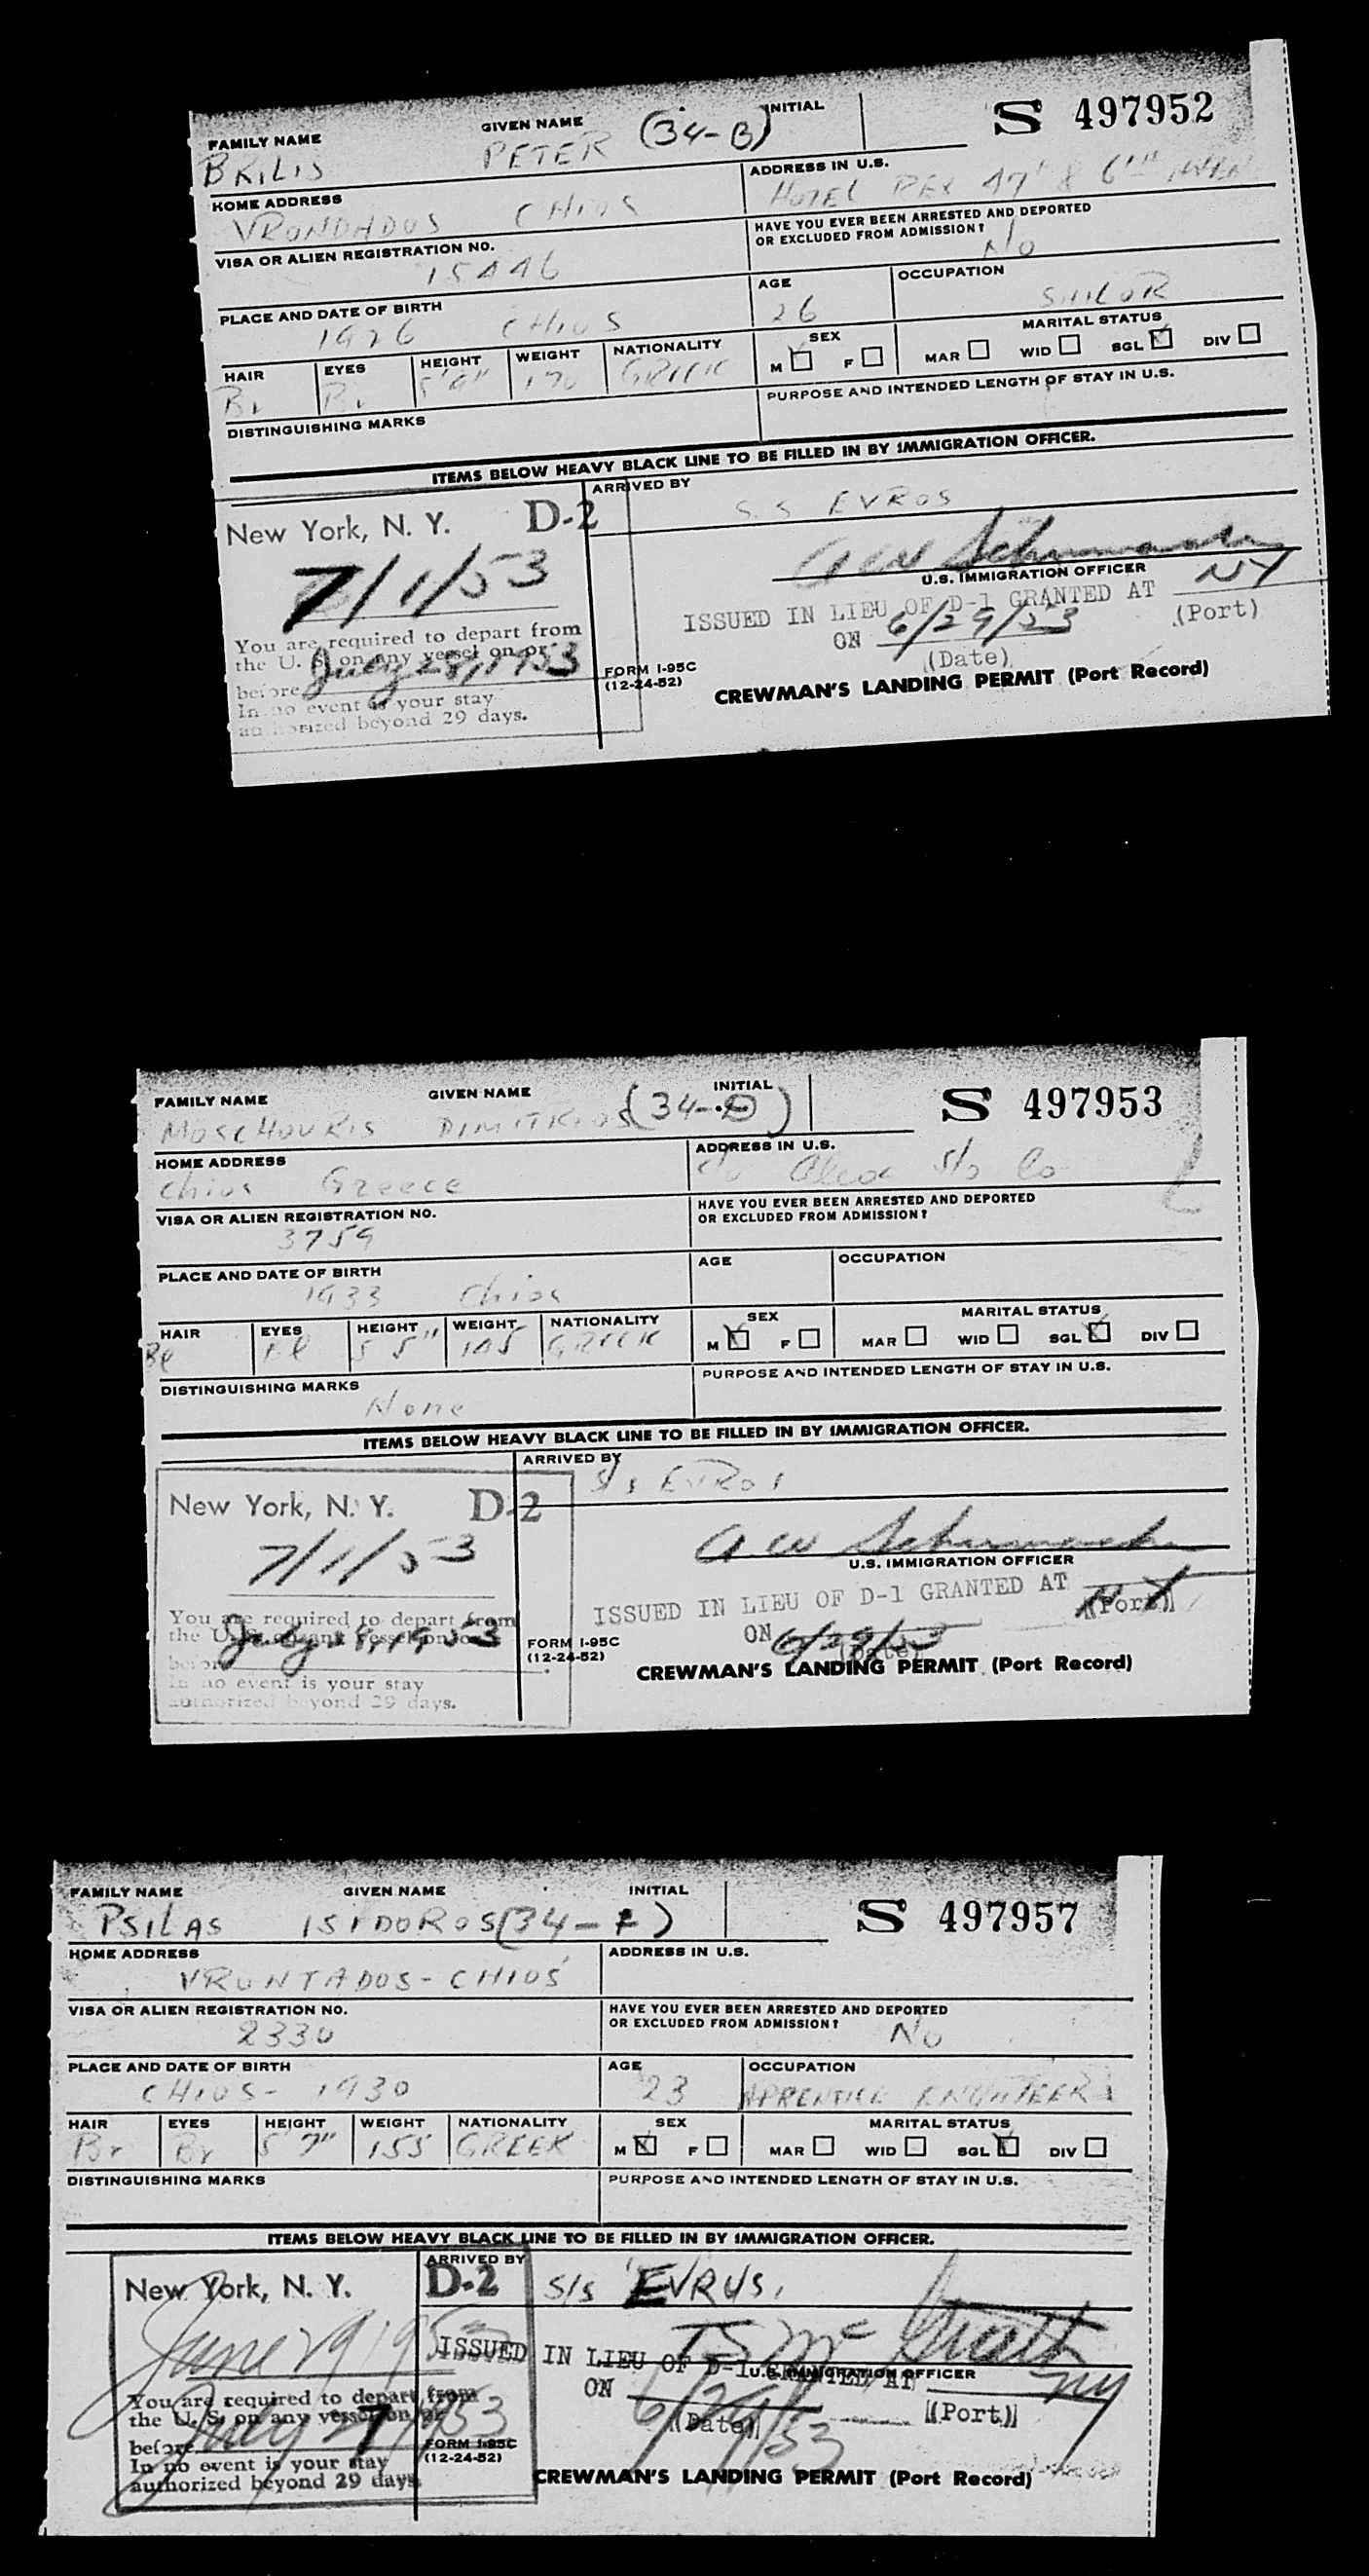 FAMILY NAME GIVEN NAME INITIAL
BRILIS PETER (34-B) S 497952
HOME ADDRESS ADDRESS IN U.S.
VRONDADOS CHIOS HOTEL REX 47 & 6TH
VISA OR ALIEN REGISTRATION NO. HAVE YOU EVER BEEN ARRESTED AND DEPORTED
OR EXCLUDED FROM ADMISSION?
15446 No
PLACE AND DATE OF BIRTH AGE OCCUPATION
1926 CHIOS 26 SAILOR
HAIR EYES HEIGHT WEIGHT NATIONALITY SEX MARITAL STATUS
Br Br 5'9" 170 GREEK M F MAR WID SGL DIV
DISTINGUISHING MARKS PURPOSE AND INTENDED LENGTH OF STAY IN U.S.
ITEMS BELOW HEAVY BLACK LINE TO BE FILLED IN BY IMMIGRATION OFFICER.
ARRIVED BY
New York, N. Y. D-2 S.S EVROS
7/1/53
A W Schumacher
U.S. IMMIGRATION OFFICER
You are required to depart from
the U. S. on any vessel on or
before July 28, 1953
In no event is your stay
authorized beyond 29 days.
ISSUED IN LIEU OF D-1 GRANTED AT NY
(Port)
ON 6/29/53
(Date)
FORM I-95C
(12-24-52)
CREWMAN'S LANDING PERMIT (Port Record)
FAMILY NAME GIVEN NAME INITIAL
MOSCHOURIS DIMITRIOS (34-D) S 497953
HOME ADDRESS ADDRESS IN U.S.
Chios Greece c/o S/S Co
VISA OR ALIEN REGISTRATION NO. HAVE YOU EVER BEEN ARRESTED AND DEPORTED
OR EXCLUDED FROM ADMISSION?
3759
PLACE AND DATE OF BIRTH AGE OCCUPATION
1933 Chios
HAIR EYES HEIGHT WEIGHT NATIONALITY SEX MARITAL STATUS
Bl Bl 5 5" 145 GREEK M F MAR WID SGL DIV
DISTINGUISHING MARKS PURPOSE AND INTENDED LENGTH OF STAY IN U.S.
None
ITEMS BELOW HEAVY BLACK LINE TO BE FILLED IN BY IMMIGRATION OFFICER.
ARRIVED BY
New York, N. Y. D-2 S/s EVROS
7/1/53
A W Schumacher
U.S. IMMIGRATION OFFICER
You are required to depart from
the U. S. on any vessel on or
before July 28, 1953
In no event is your stay
authorized beyond 29 days.
ISSUED IN LIEU OF D-1 GRANTED AT NY
(Port)
ON 6/29/53
(Date)
FORM I-95C
(12-24-52)
CREWMAN'S LANDING PERMIT (Port Record)
FAMILY NAME GIVEN NAME INITIAL
PSILAS ISIDOROS (34-F) S 497957
HOME ADDRESS ADDRESS IN U.S.
VRONTADOS-CHIOS
VISA OR ALIEN REGISTRATION NO. HAVE YOU EVER BEEN ARRESTED AND DEPORTED
OR EXCLUDED FROM ADMISSION?
2330 No
PLACE AND DATE OF BIRTH AGE OCCUPATION
CHIOS- 1930 23 APRENTICE ENGINEER
HAIR EYES HEIGHT WEIGHT NATIONALITY SEX MARITAL STATUS
Br Br 5'7" 155 GREEK M F MAR WID SGL DIV
DISTINGUISHING MARKS PURPOSE AND INTENDED LENGTH OF STAY IN U.S.
ITEMS BELOW HEAVY BLACK LINE TO BE FILLED IN BY IMMIGRATION OFFICER.
ARRIVED BY
New York, N. Y. D-2 S/s EVROS.
June 29 1953
U.S. IMMIGRATION OFFICER
ISSUED IN LIEU OF D-1 GRANTED AT NY
(Port)
ON 6/29/53
(Date)
You are required to depart from
the U. S. on any vessel on or
before July 27 1953
In no event is your stay
authorized beyond 29 days.
FORM I-95C
(12-24-52)
CREWMAN'S LANDING PERMIT (Port Record)